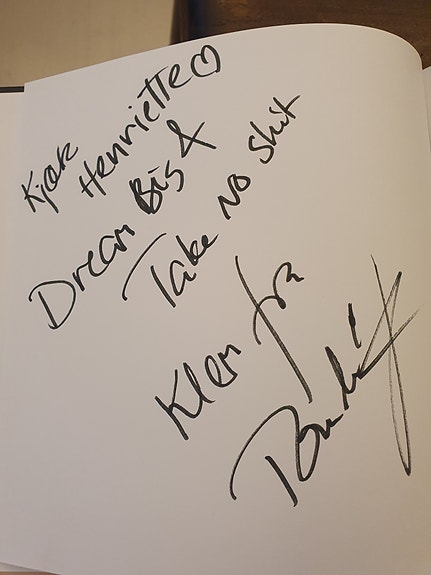 Kjære
Henriette
Dream Big &
Take no shit
Klem fra